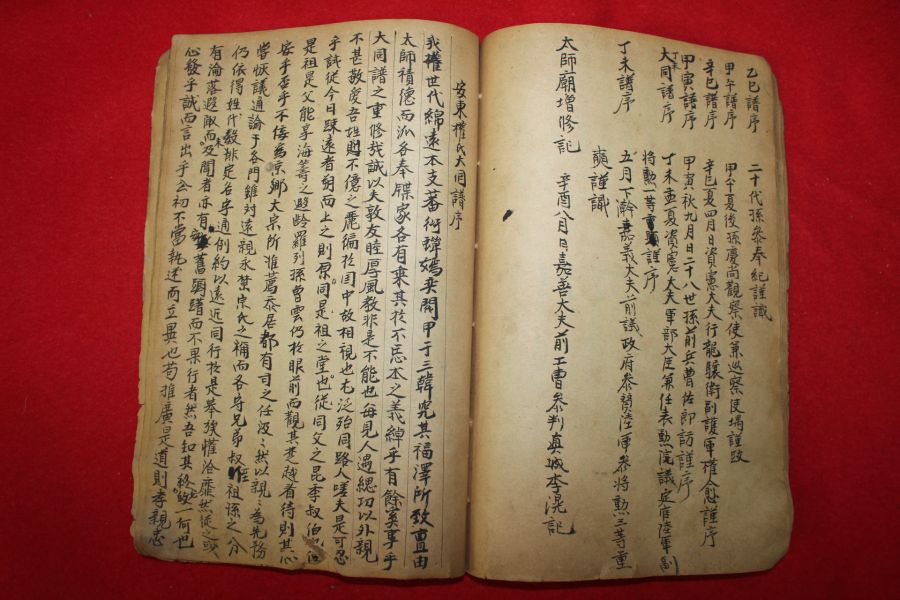 乙巳譜序 二十代孫參奉紀謹識
甲午譜序 甲午夏後孫慶尚觀察使兼巡察使 謹跋
辛巳譜序 辛巳夏四月日資憲大夫行龍驤衛副護軍權愈謹序
甲寅譜序 甲寅秋九月日二十八世孫前兵曹佐郎 謹序
丁未大同譜序 丁未孟夏資憲大夫軍部大臣兼任表勳院議定官陸軍副
將勳一等重顯謹序
丁未譜序 五月下澣嘉義大夫前議政府參贊陸軍參將勳三等重
奭謹識
太師廟增修記 辛酉八月日嘉善大夫前工曹參判真城李滉記
安東權氏大同譜序
我權世代綿遠本支蕃衍 嫣 開甲于三韓究其福澤所致亶由
太師積德而派各奉牒家各有乘其於不忘本之義綽乎有餘矣事乎
大同譜之重修哉誠以夫敦友睦厚風教非是不能也每見人遇緦功以外親
不甚敬愛吾姓則不億之麗編於國中故相視也尤泛殆同路人嗟夫是可忍
乎試從今日疎遠者朔而上之則原同是祖之堂也從同父之昆季叔伯也
是祖是父能享海籌之遐齡羅列孫曾雲仍於眼前而觀其楚越看待則其心
安乎否乎不佞為京鄉大宗所推薦忝居都有司之任汲汲然以親親為先務
嘗恢議通諭于各門雖對遠親永禁宗氏之稱而各守兄弟叔侄祖孫之分
仍依得姓代數排定名乎通例約以遠近同行於是舉族懽洽靡然從之或
有淪落遐陬而未及聞者亦有 舊 而不果行者然吾知其終 一何也
心發乎誠而言出乎公初不當執迷而立異也苟推廣是道則孝親忠